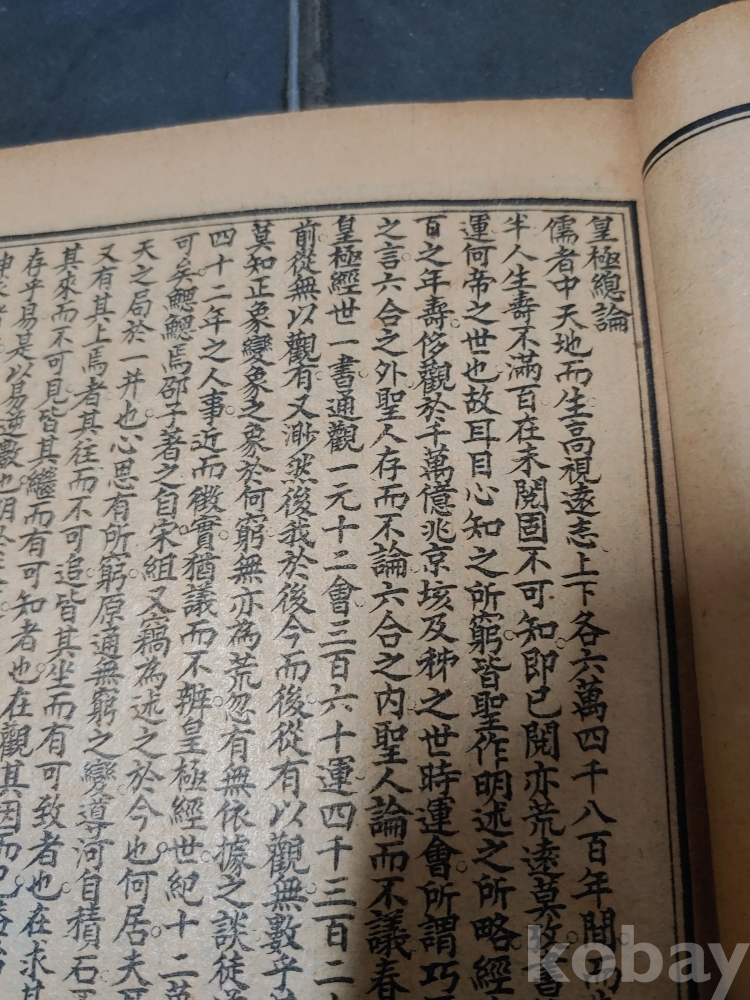 皇極總論
儒者中天地而生高視遠志上下各六萬四千八百年間而
半人生壽不滿百在未閱固不可知即已閱亦荒遠莫
運何帝之世也故耳目心知之所窮皆聖作明述之所略經
百之年壽侈觀於千萬億兆京垓及秭之世時運會所謂巧
之言六合之外聖人存而不論六合之內聖人論而不議春
皇極經世一書通觀一元十二會三百六十運四千三百二
前從無以觀有又渺然後我於後今而後從有以觀無數乎
莫知正象變象之象於何窮無亦為荒忽有無依據之談徒
四十二年之人事近而徵實猶議而不辨皇極經世紀十二萬
可矣鰓鰓焉邵子著之自宋組又竊為述之於今也何居夫
天之局於一井也心思有所窮原通無窮之變導河自積石
又有其上焉者其往而不可追皆其坐而有可致者也在求其
其來而不可見皆其繼而有可知者也在觀其因而已
存乎易是以易逆數也
kobay